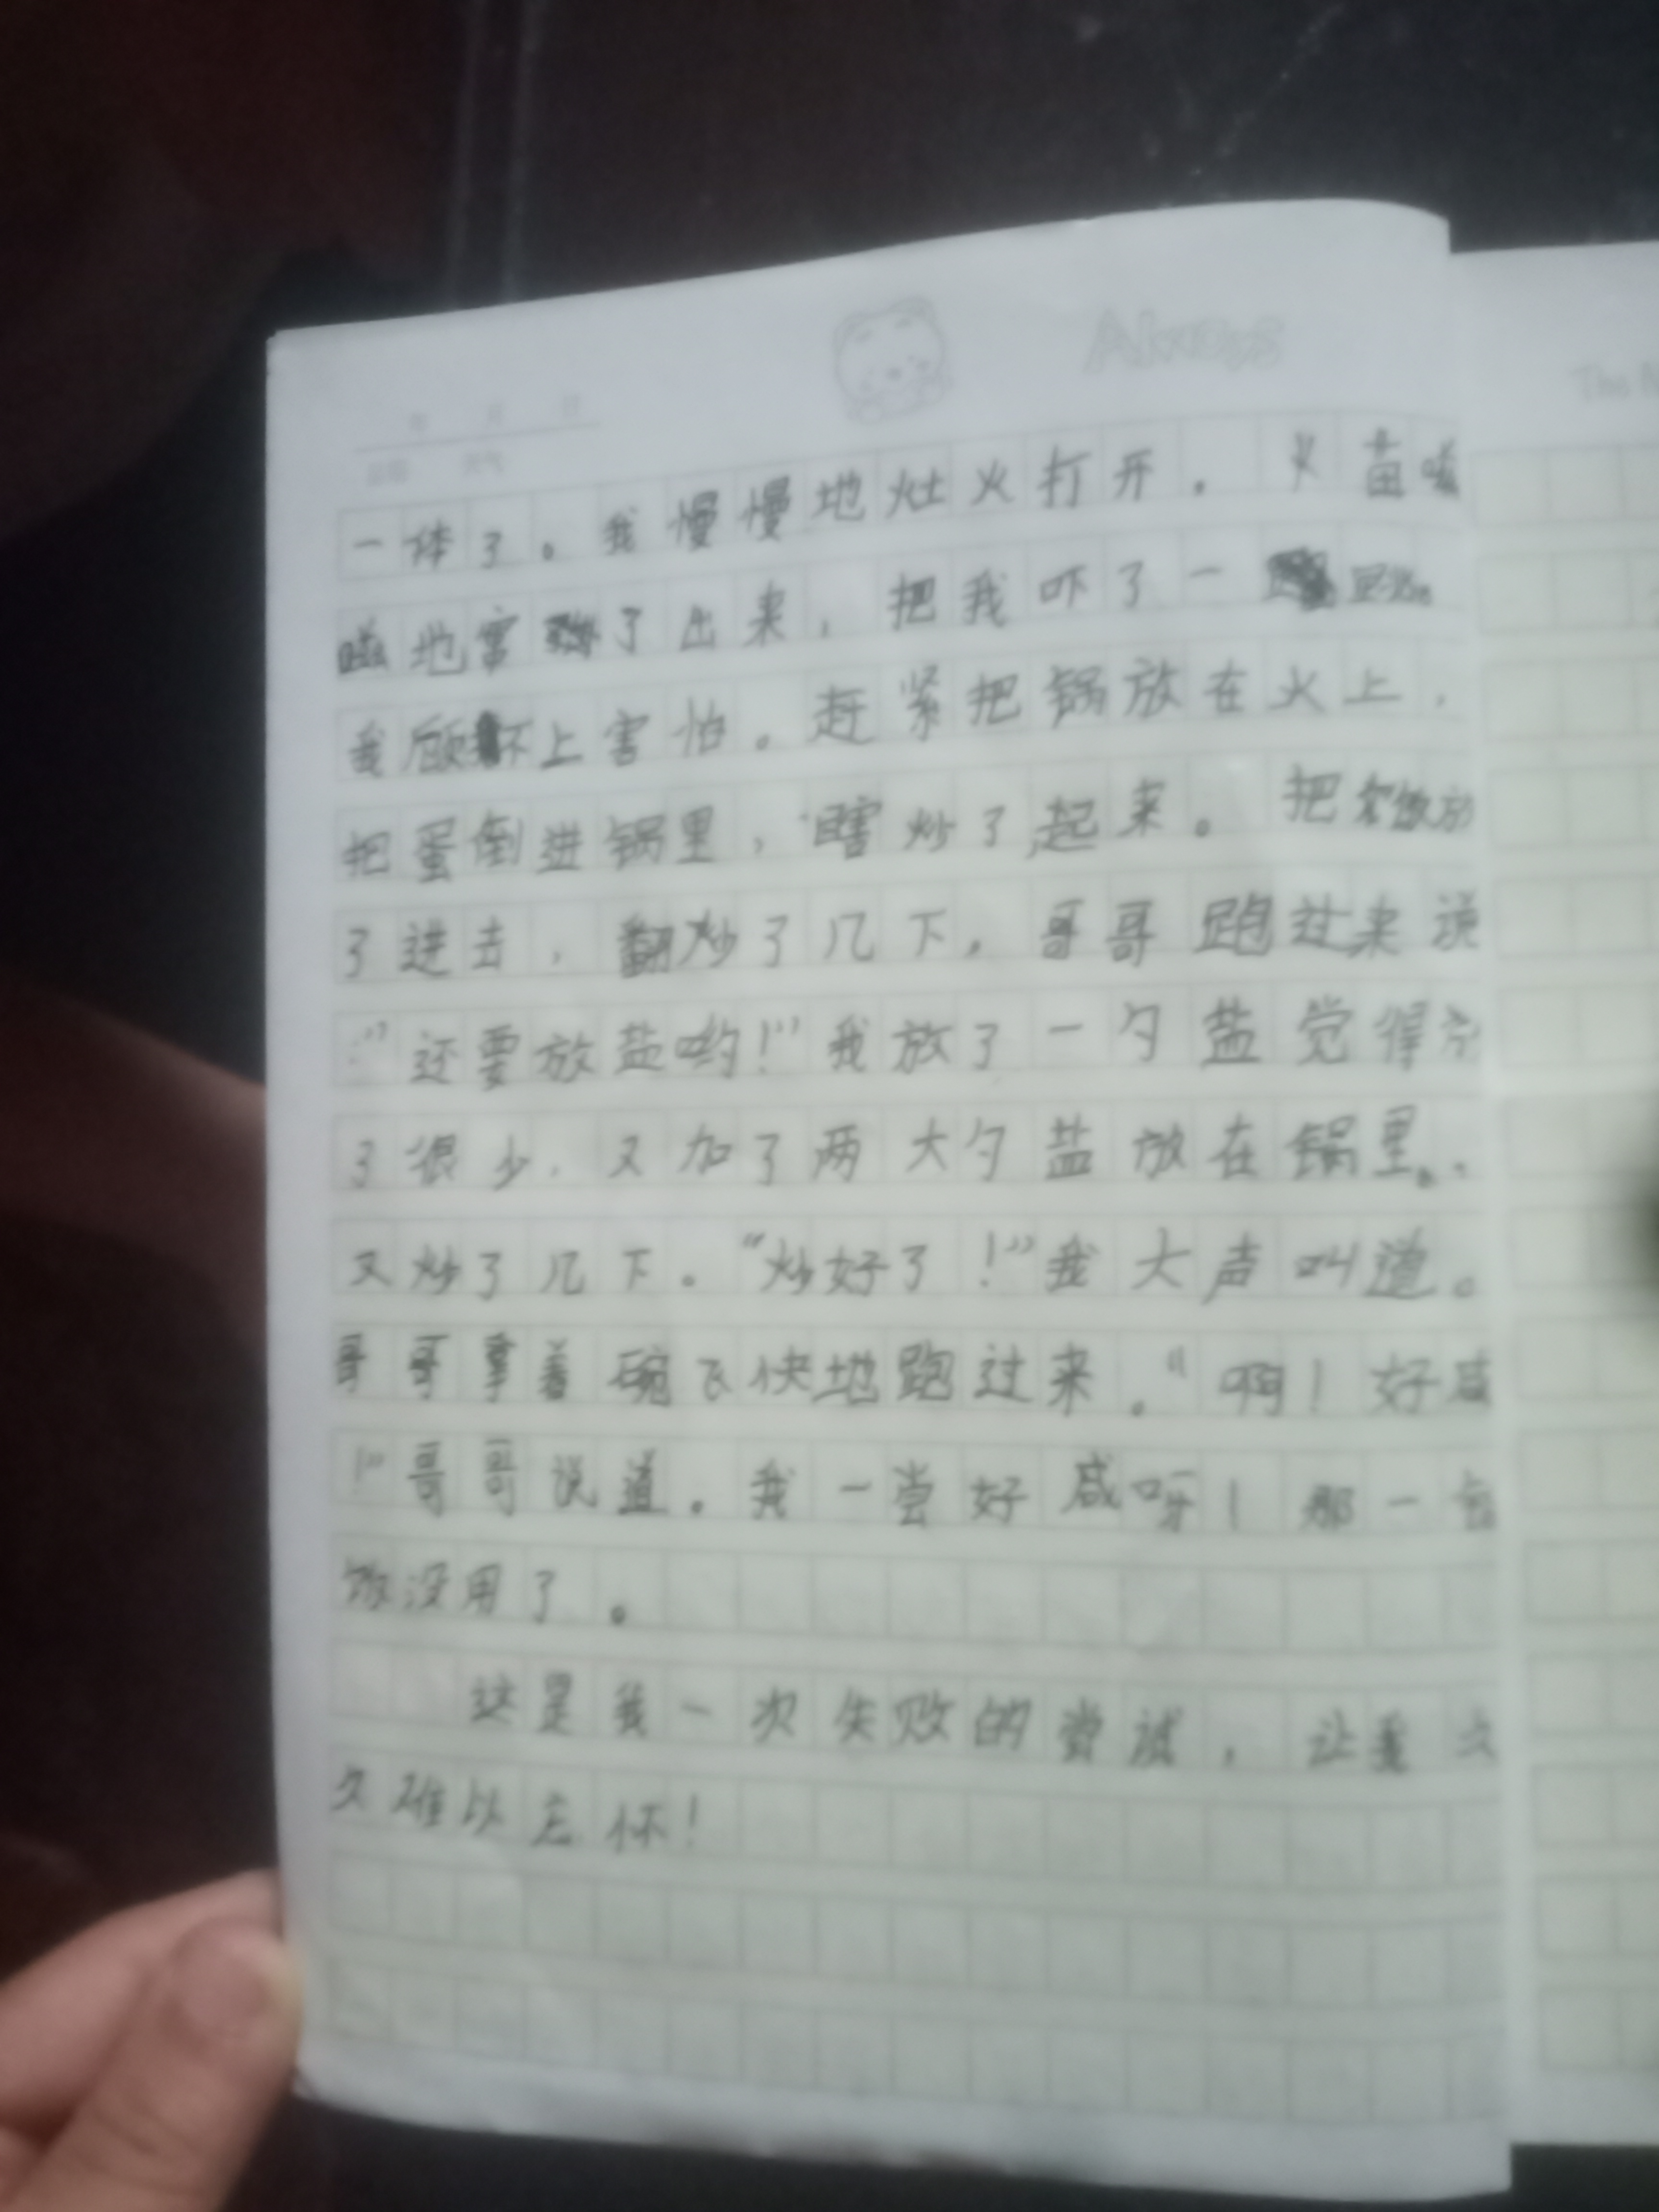 Always
年 月 日
天气
The
一体了。我慢慢地灶火打开，火苗嗞
嗞地窜了出来，把我吓了一跳。
我顾不上害怕。赶紧把锅放在火上，
把蛋倒进锅里，瞎炒了起来。把饭放
了进去，翻炒了几下，哥哥跑过来说
:“还要放盐哟！”我放了一勺盐觉得
了很少，又加了两大勺盐放在锅里。
又炒了几下。“炒好了！”我大声叫道。
哥哥拿着碗飞快地跑过来。“啊！好咸
！”哥哥说道。我一尝好咸呀！那一
饭没用了。
这是我一次失败的尝试，让我久
久难以忘怀！